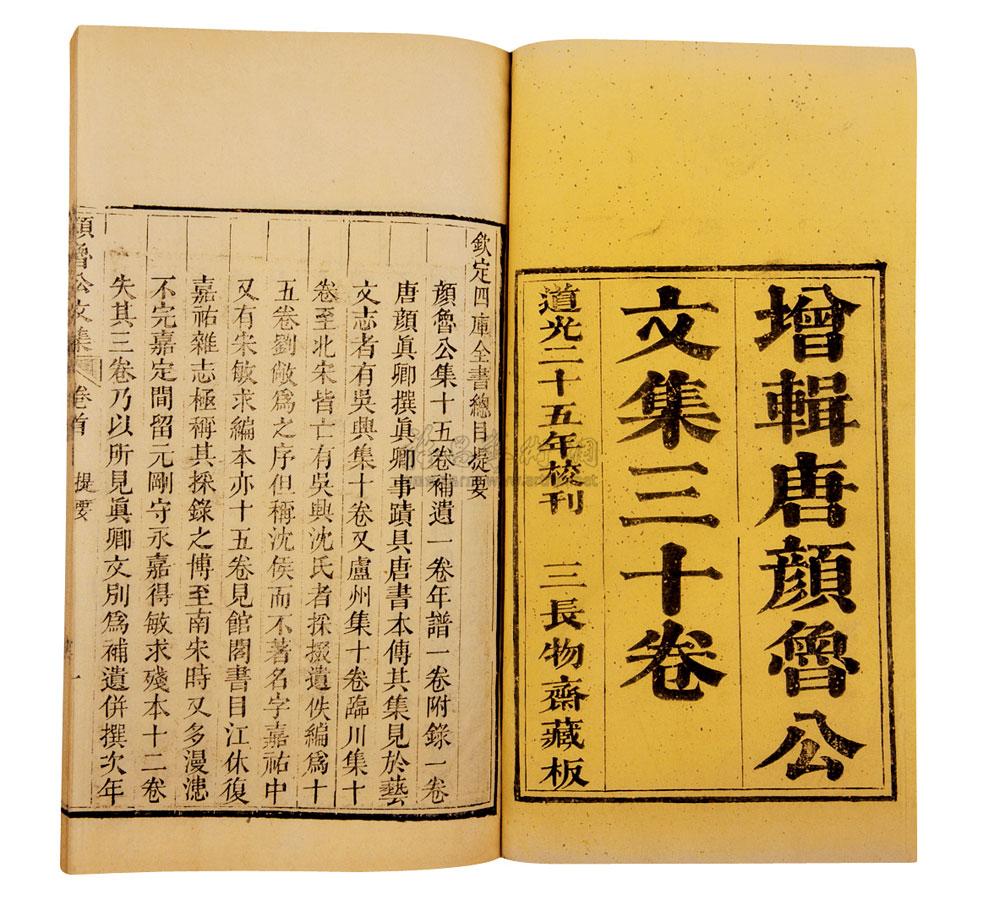 增輯唐顏魯公
文集三十卷
道光二十五年校刊　三長物齋藏板
欽定四庫全書總目提要
顏魯公集十五卷補遺一卷年譜一卷附錄一卷
唐顏眞卿撰眞卿事蹟具唐書本傳其集見於藝
文志者有吳興集十卷又盧州集十卷臨川集十
卷至北宋皆亡有吳興沈氏者採掇遺佚編爲十
五卷劉敞爲之序但稱沈侯而不著名字嘉祐中
又有宋敏求編本亦十五卷見館閣書目江休復
嘉祐雜志極稱其採錄之博至南宋時又多漫漶
不完嘉定間留元剛守永嘉得敏求殘本十二卷
失其三卷乃以所見眞卿文別爲補遺併撰次年
顏魯公文集　卷首　提要　一